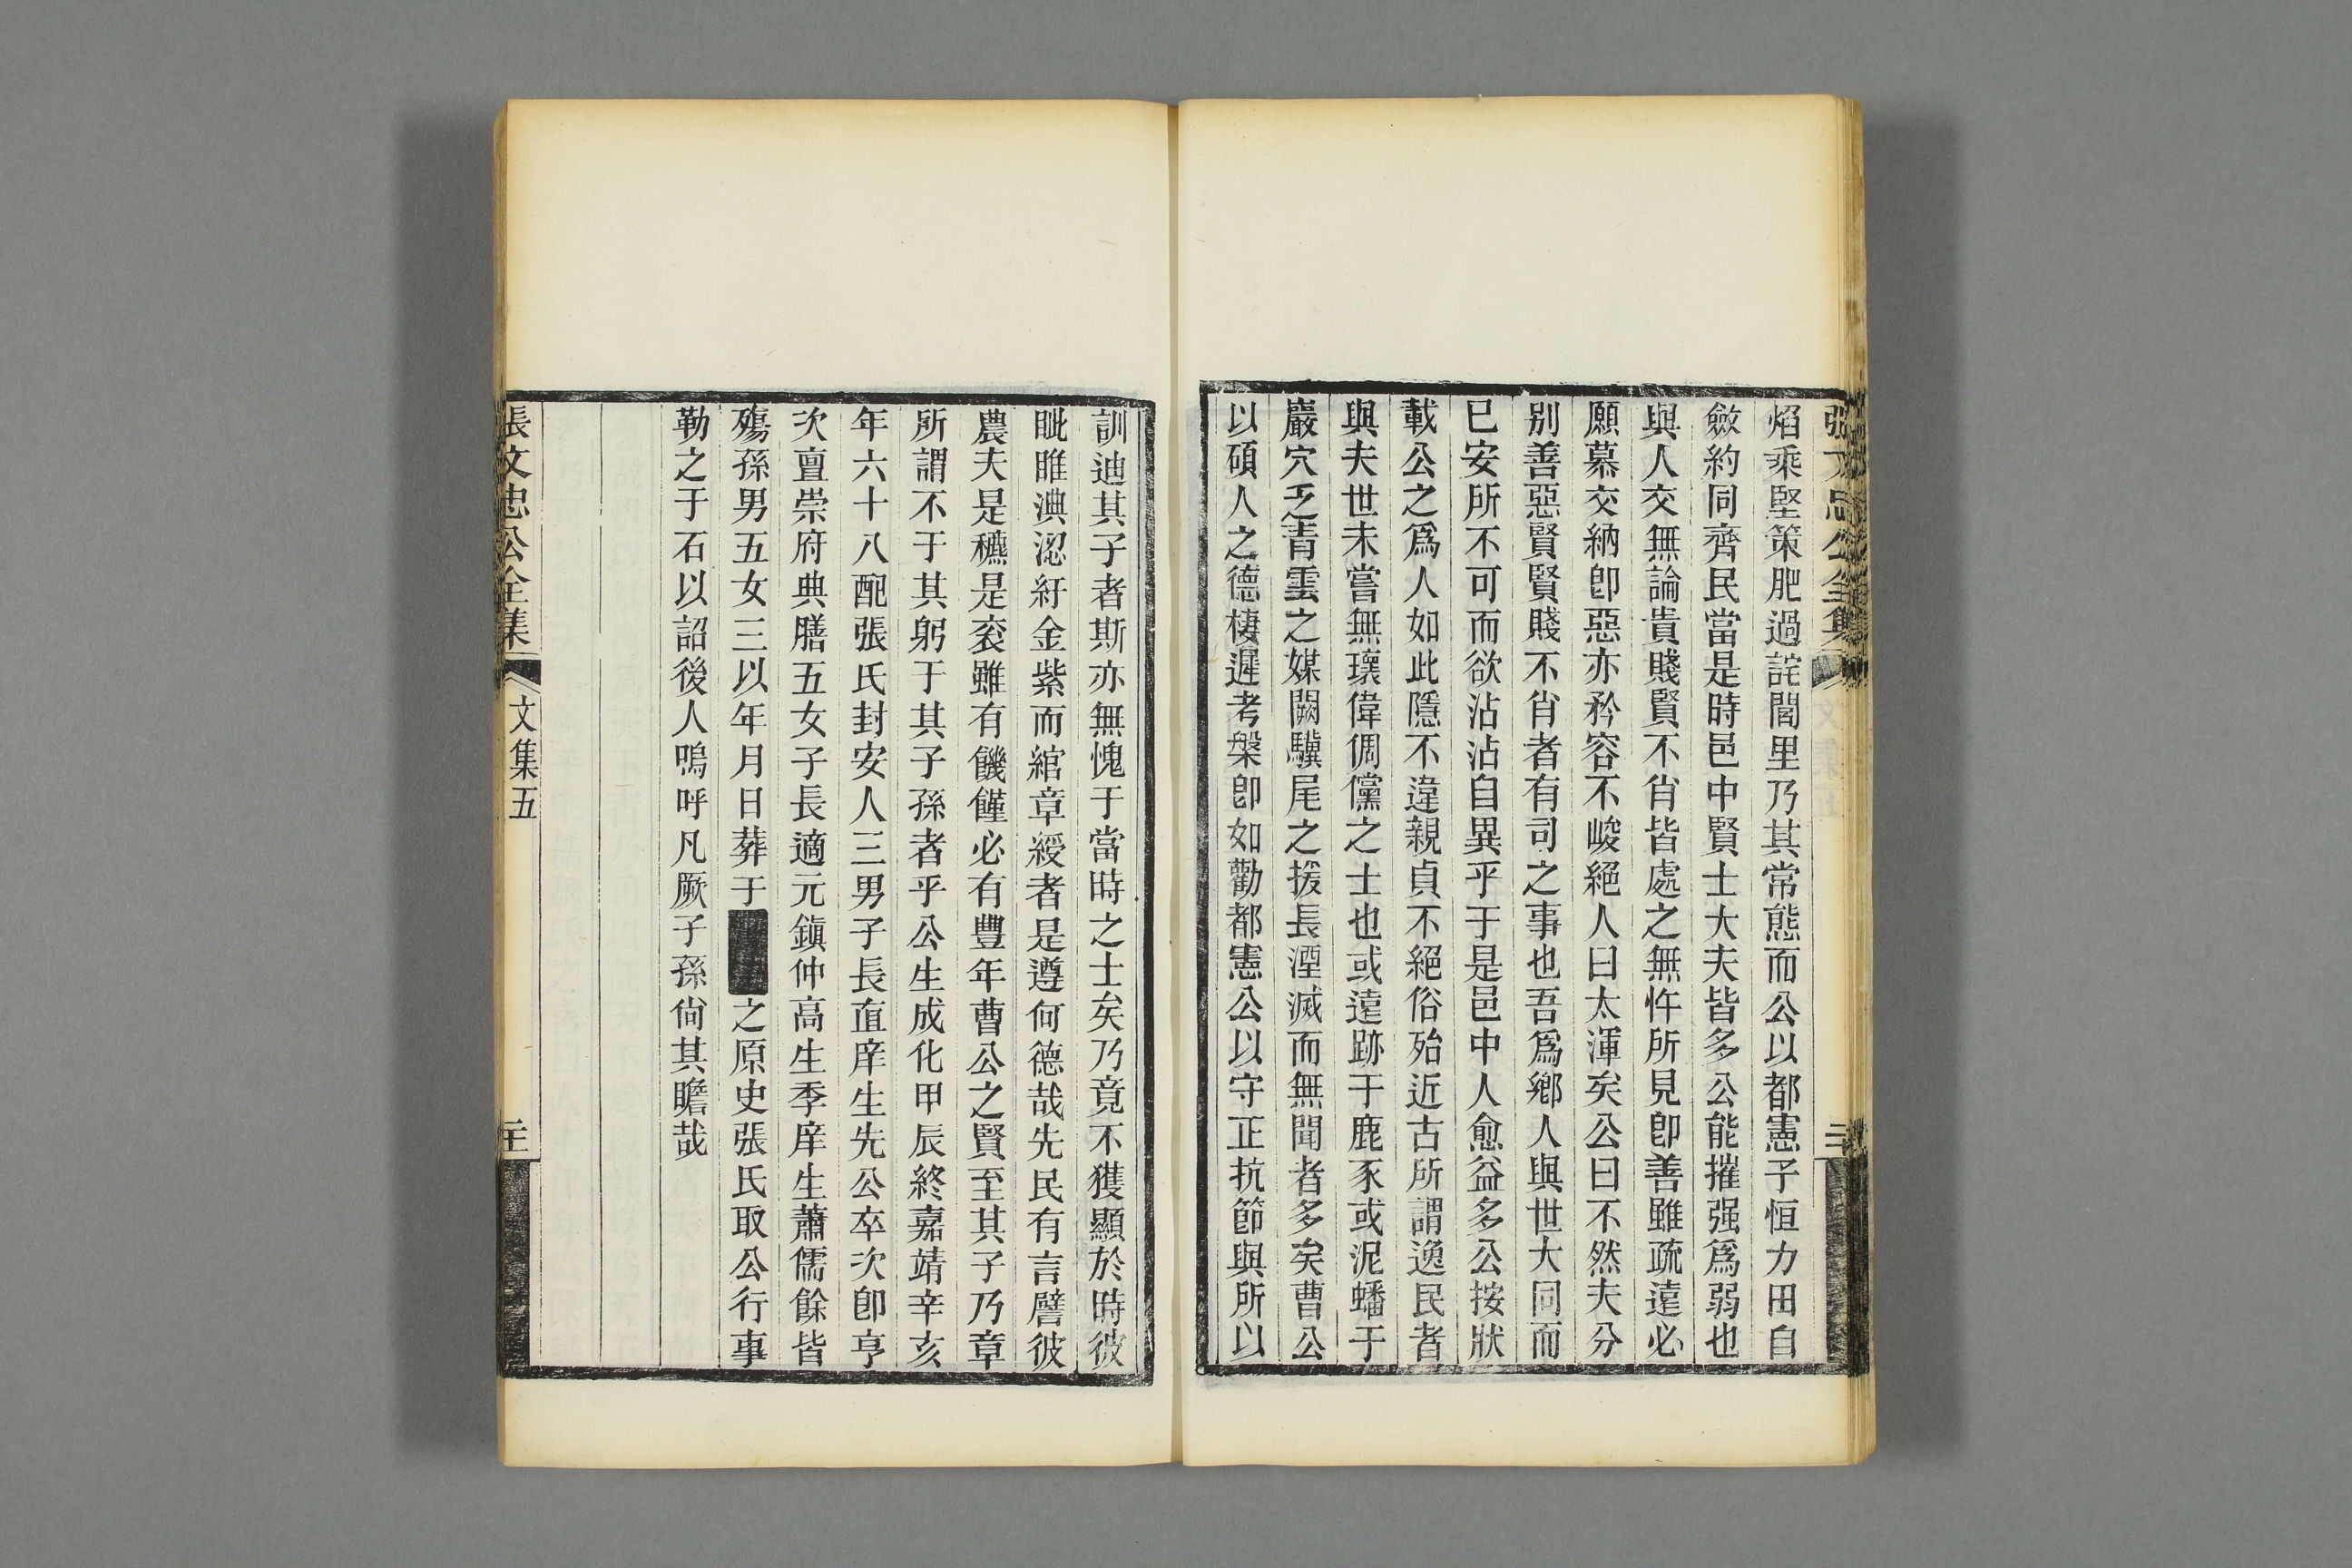 焰乘堅策肥過詫閭里乃其常態而公以都憲子恒力田自
斂約同齊民當是時邑中賢士大夫皆多公能摧强爲弱也
與人交無論貴賤賢不肖皆處之無忤所見卽善雖疏遠必
願慕交納卽惡亦矜容不峻絕人曰太渾矣公曰不然夫分
別善惡賢賢賤不肖者有司之事也吾爲鄉人與世大同而
已安所不可而欲沾沾自異乎于是邑中人愈益多公按狀
載公之爲人如此隱不違親貞不絕俗殆近古所謂逸民者
與夫世未嘗無瓌偉倜儻之士也或遠跡于鹿豕或泥蟠于
巖穴乏青雲之媒闕驥尾之援長湮滅而無聞者多矣曹公
以碩人之德棲遲考槃卽如勸都憲公以守正抗節與所以
訓迪其子者斯亦無愧于當時之士矣乃竟不獲顯於時彼
眦睢淟涊紆金紫而綰章綬者是遵何德哉先民有言譬彼
農夫是穮是蓘雖有饑饉必有豐年曹公之賢至其子乃章
所謂不于其躬于其子孫者乎公生成化甲辰終嘉靖辛亥
年六十八配張氏封安人三男子長直庠生先公卒次卽亨
次亶崇府典膳五女子長適元鎮仲高生季庠生蕭儒餘皆
殤孫男五女三以年月日葬于之原史張氏取公行事
勒之于石以詔後人嗚呼凡厥子孫尙其瞻哉
張文忠公全集
文集五